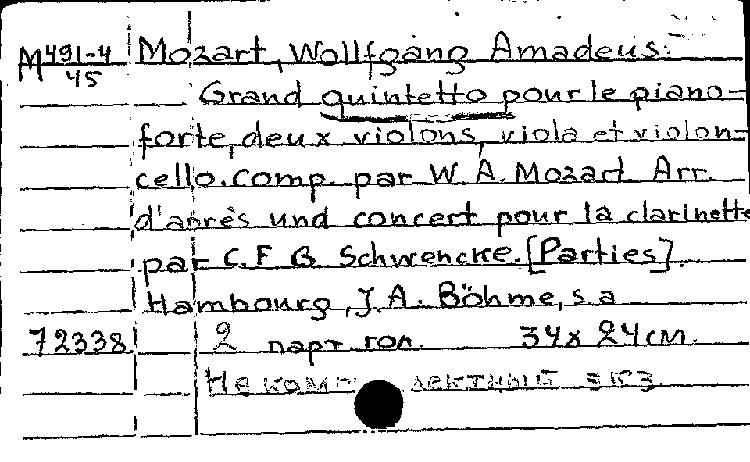 М 491-4 Mozart, Wollfgang Amadeus.
45
Grand quintetto pour le piano-
forte, deux violons, viola et violon-
cello. Comp. par W. A. Mozart. Arr.
d'après und concert pour la clarinette
par C. F. G. Schwencke. [Parties].
Hambourg, J. A. Böhme, s. a
72338 2 парт. гол. 34x24 см.
Не комплектный экз.